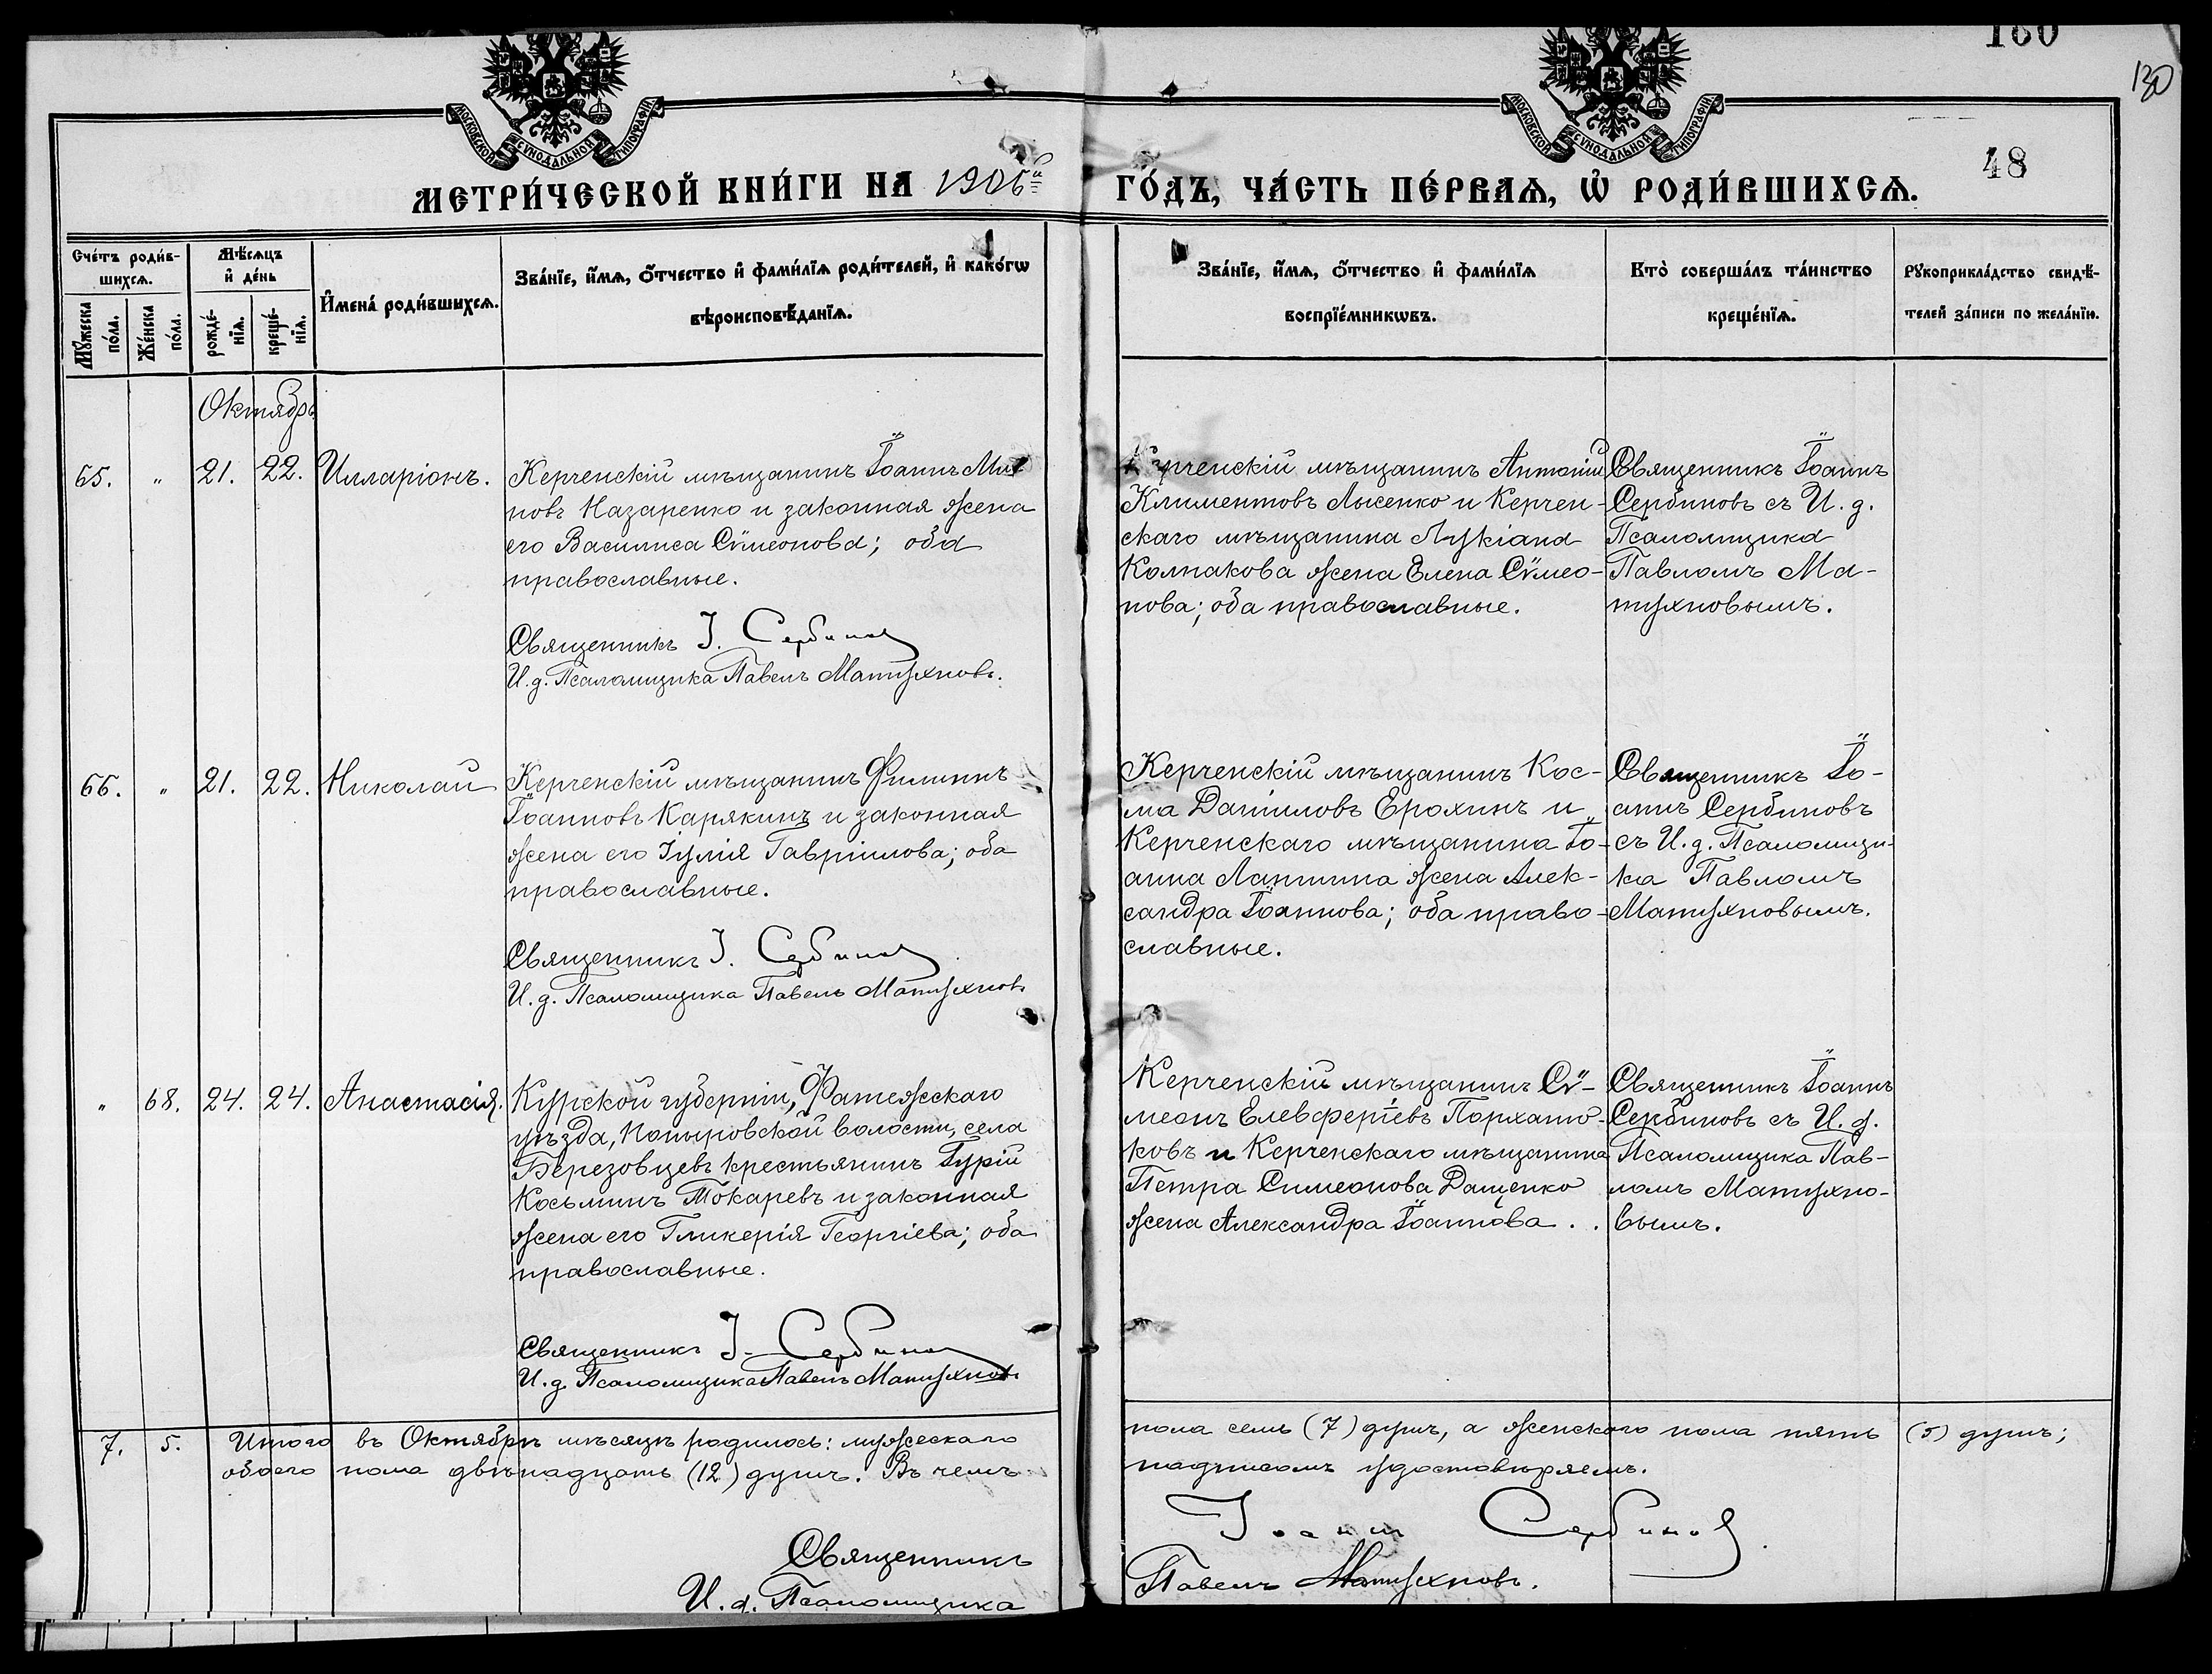 130
48
МОСКОВСКОЙ СѴНОДАЛЬНОЙ ТИПОГРАФІИ
МОСКОВСКОЙ СѴНОДАЛЬНОЙ ТИПОГРАФІИ
МЕТРИ́ЧЕСКОЙ КНИ́ГИ НА 190 й ГО́ДЪ, ЧА́СТЬ ПЕ́РВАѦ, Ѡ҆ РОДИ́ВШИХСѦ.
Сче́тъ роди́в-
шихсѧ.
Мꙋ́жеска по́ла.
Же́нска по́ла.
Мѣ́сѧцъ
и҆ де́нь
рожде́-
нїѧ.
креще́-
нїѧ.
И҆мена́ роди́вшихсѧ.
Зва́нїе, и҆́мѧ, ѻ҆́тчество и҆ фами́лїѧ роди́телей, и҆ како́гѡ
вѣроисповѣ́данїѧ.
Зва́нїе, и҆́мѧ, ѻ҆́тчество и҆ фами́лїѧ
воспрїе́мникѡвъ.
Кто̀ соверша́лъ та́инство
креще́нїѧ.
Рꙋкоприкла́дство свидѣ́-
телей за́писи по жела́нїю.
Октябрь
65. " 21. 22. Илларіонъ.
Керченскій мѣщанинъ Іоаннъ
новъ Назаренко и законная жена
его Василиса Сѵмеонова; оба
православные.
Священникъ І. Сербинов
И. д. Псаломщика Павелъ Матухновъ.
Керченскій мѣщанинъ Антоній
Климентовъ Лысенко и Керчен-
скаго мѣщанина Лукіана
Колпакова жена Елена Сѵмео-
нова; оба православные.
Священникъ Іоаннъ
Сербиновъ съ И. д.
Псаломщика
Павломъ Ма-
тухновымъ.
66. " 21. 22. Николай
Керченскій мѣщанинъ Филиппъ
Іоанновъ Карякинъ и законная
жена его Іулія Гавріилова; оба
православные.
Священникъ І. Сербинов
И. д. Псаломщика Павелъ Матухновъ
Керченскій мѣщанинъ Кос-
ма Даніиловъ Ерохинъ и
Керченскаго мѣщанина Іо-
анна жена Алек-
сандра Іоаннова; оба право-
славные.
Священникъ Іо-
аннъ Сербиновъ
съ И. д. Псаломщи-
ка Павломъ
Матухновымъ.
" 68. 24. 24. Анастасія.
Курской губерніи, Фатежскаго
уѣзда, Поныровской волости, села
Березовцевъ крестьянинъ Гурій
Косьминъ Токаревъ и законная
жена его Гликерія Георгіева; оба
православные.
Священникъ І. Сербинов
И. д. Псаломщика Павелъ Матухновъ
Керченскій мѣщанинъ Сѵ-
меонъ Елевферіевъ Пархато-
ковъ и Керченскаго мѣщанина
Петра Симеонова Дащенко
жена Александра Іоаннова . .
Священникъ Іоаннъ
Сербиновъ съ И. д.
Псаломщика Пав-
ломъ Матухно-
вымъ.
7. 5. Итого въ Октябрѣ мѣсяцѣ родилось: мужескаго пола семь (7) душъ, а женскаго пола пять (5) душъ;
обоего пола двѣнадцать (12) душъ. Въ чемъ подписомъ удостовѣряемъ.
Священникъ Іоаннъ Сербинов
И. д. Псаломщика Павелъ Матухновъ.